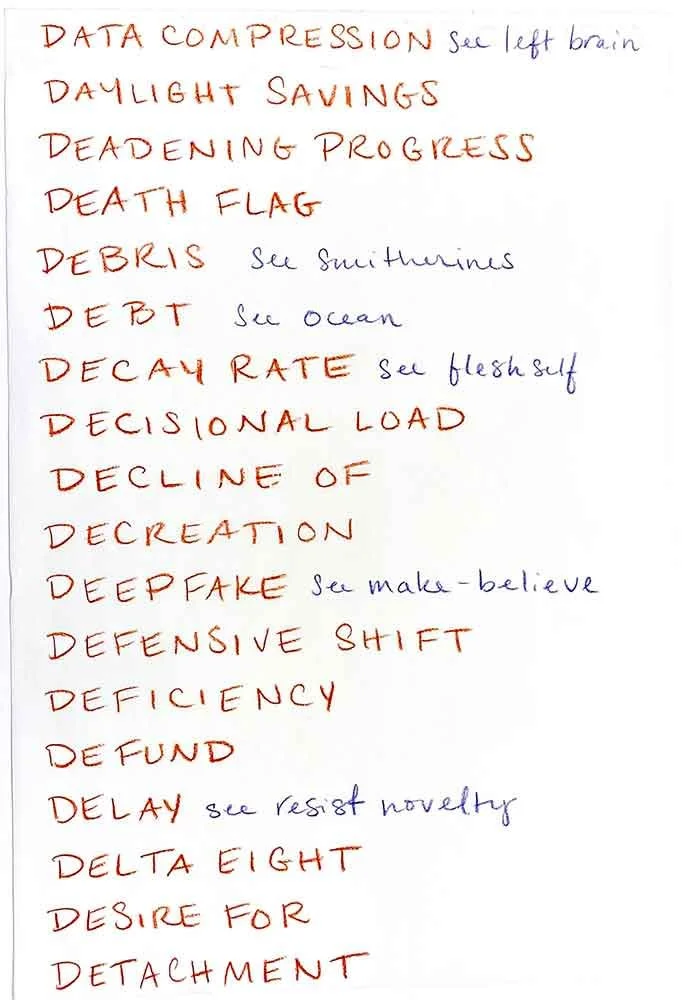 DATA COMPRESSION see left brain
DAYLIGHT SAVINGS
DEADENING PROGRESS
DEATH FLAG
DEBRIS see Smitherines
DEBT see ocean
DECAY RATE see flesh self
DECISIONAL LOAD
DECLINE OF
DECREATION
DEEPFAKE see make-believe
DEFENSIVE SHIFT
DEFICIENCY
DEFUND
DELAY see resist novelty
DELTA EIGHT
DESIRE FOR
DETACHMENT